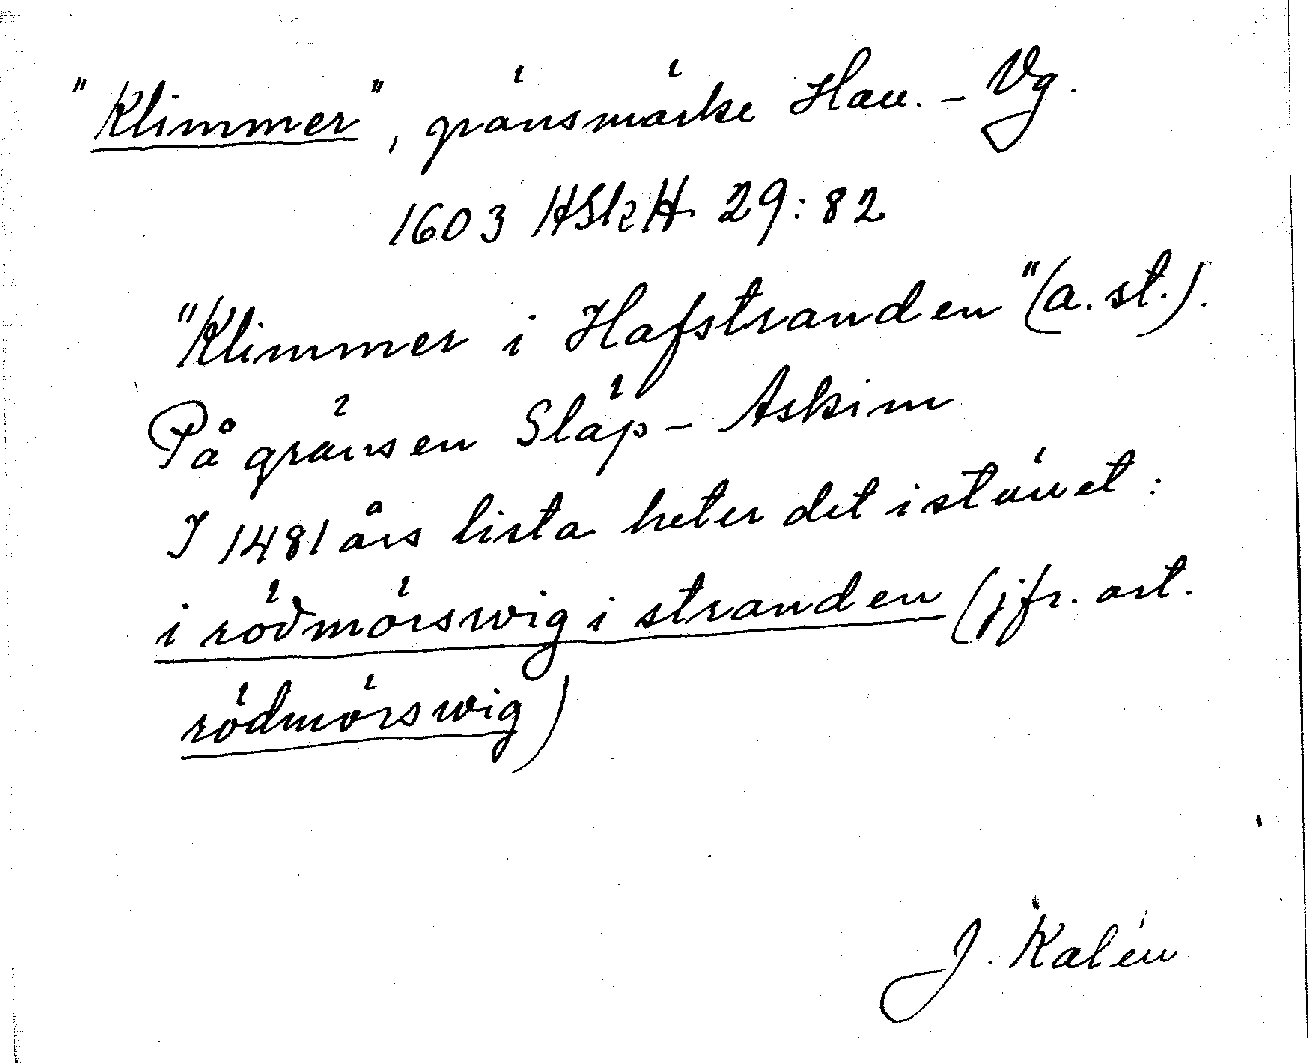 "Klimmer", gränsmärke Hau. - Vg.
1603 HSkH 29:82
"Klimmer i Hafstranden" (a. st.).
På gränsen Släp - Askim
I 1481 års lista heter det istället:
i rödmörswig i stranden (jfr. art.
rödmörswig)
J. Kalén